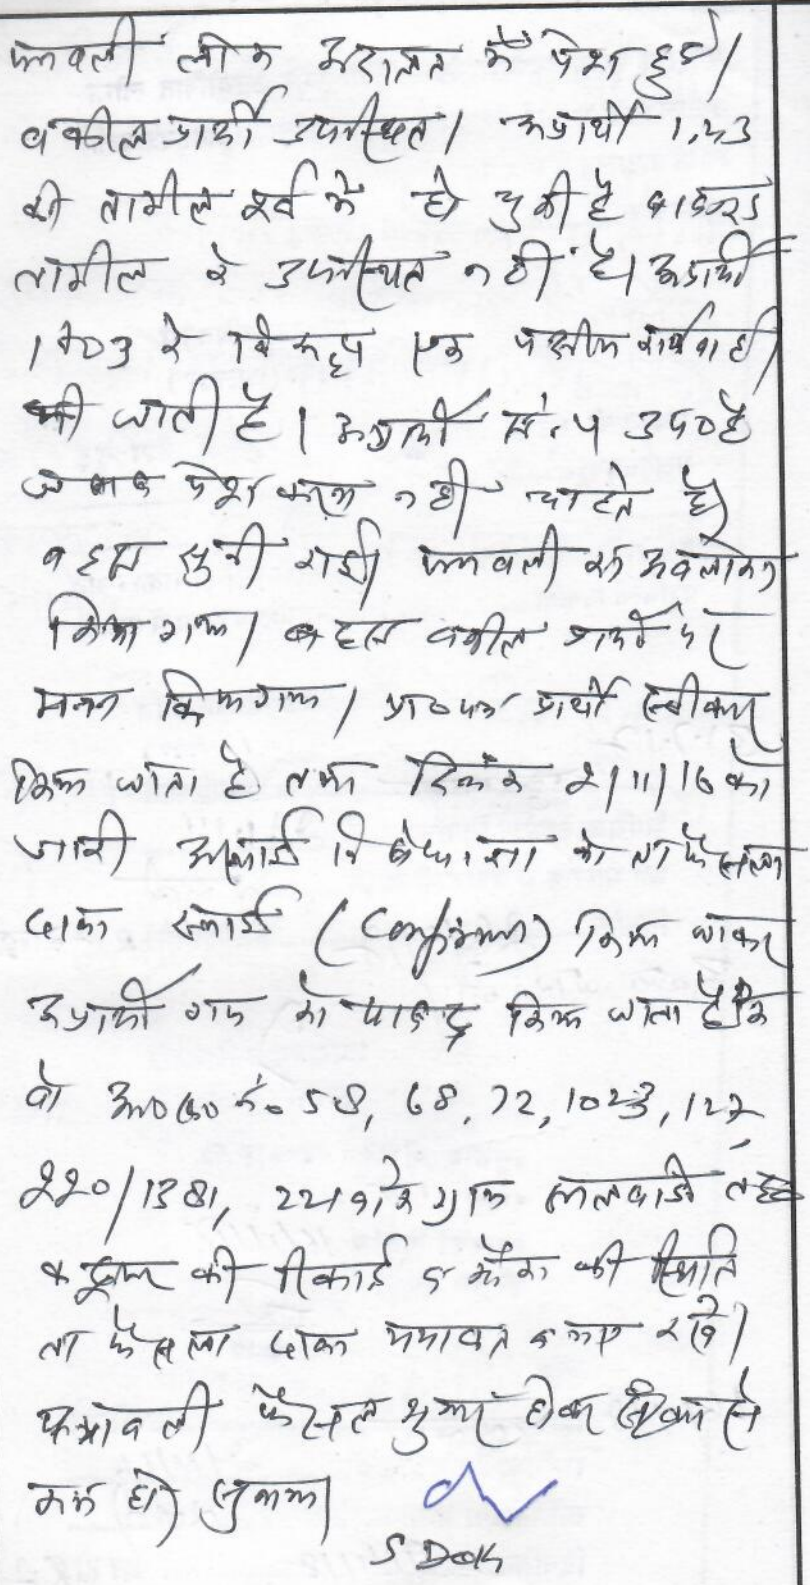 पत्रावली लोक अदालत में पेश हुई।
वकील प्रार्थी उपस्थित। अप्रार्थी 1 व 3
की तामील पूर्व में हो चुकी है बावजूद
तामील के उपस्थित नहीं है। अप्रार्थी
1 व 3 के विरूद्ध एक पक्षीय कार्यवाही
की जाती है। अप्रार्थी सं. 4 उप० है
जवाब पेश करना नहीं चाहते है।
बहस सुनी गई। पत्रावली का अवलोकन
किया गया। बहस वकील प्रार्थी पर
मनन किया गया। प्रा० पत्र प्रार्थी स्वीकार
किया जाता है तथा दिनांक 2/11/16 को
जारी अस्थाई निषेधाज्ञा को ता फैसला
दावा स्थाई (Confirm) किया जाकर
अप्रार्थी गण को पाबन्द किया जाता है कि
वो आ० ख० नं० 58, 68, 72, 1023, 127,
220/1381, ग्राम तह०
की रिकार्ड व मौका की स्थिति
ता फैसला दावा यथावत बनाए रखे।
पत्रावली फैसल शुमार होकर
कम हो।